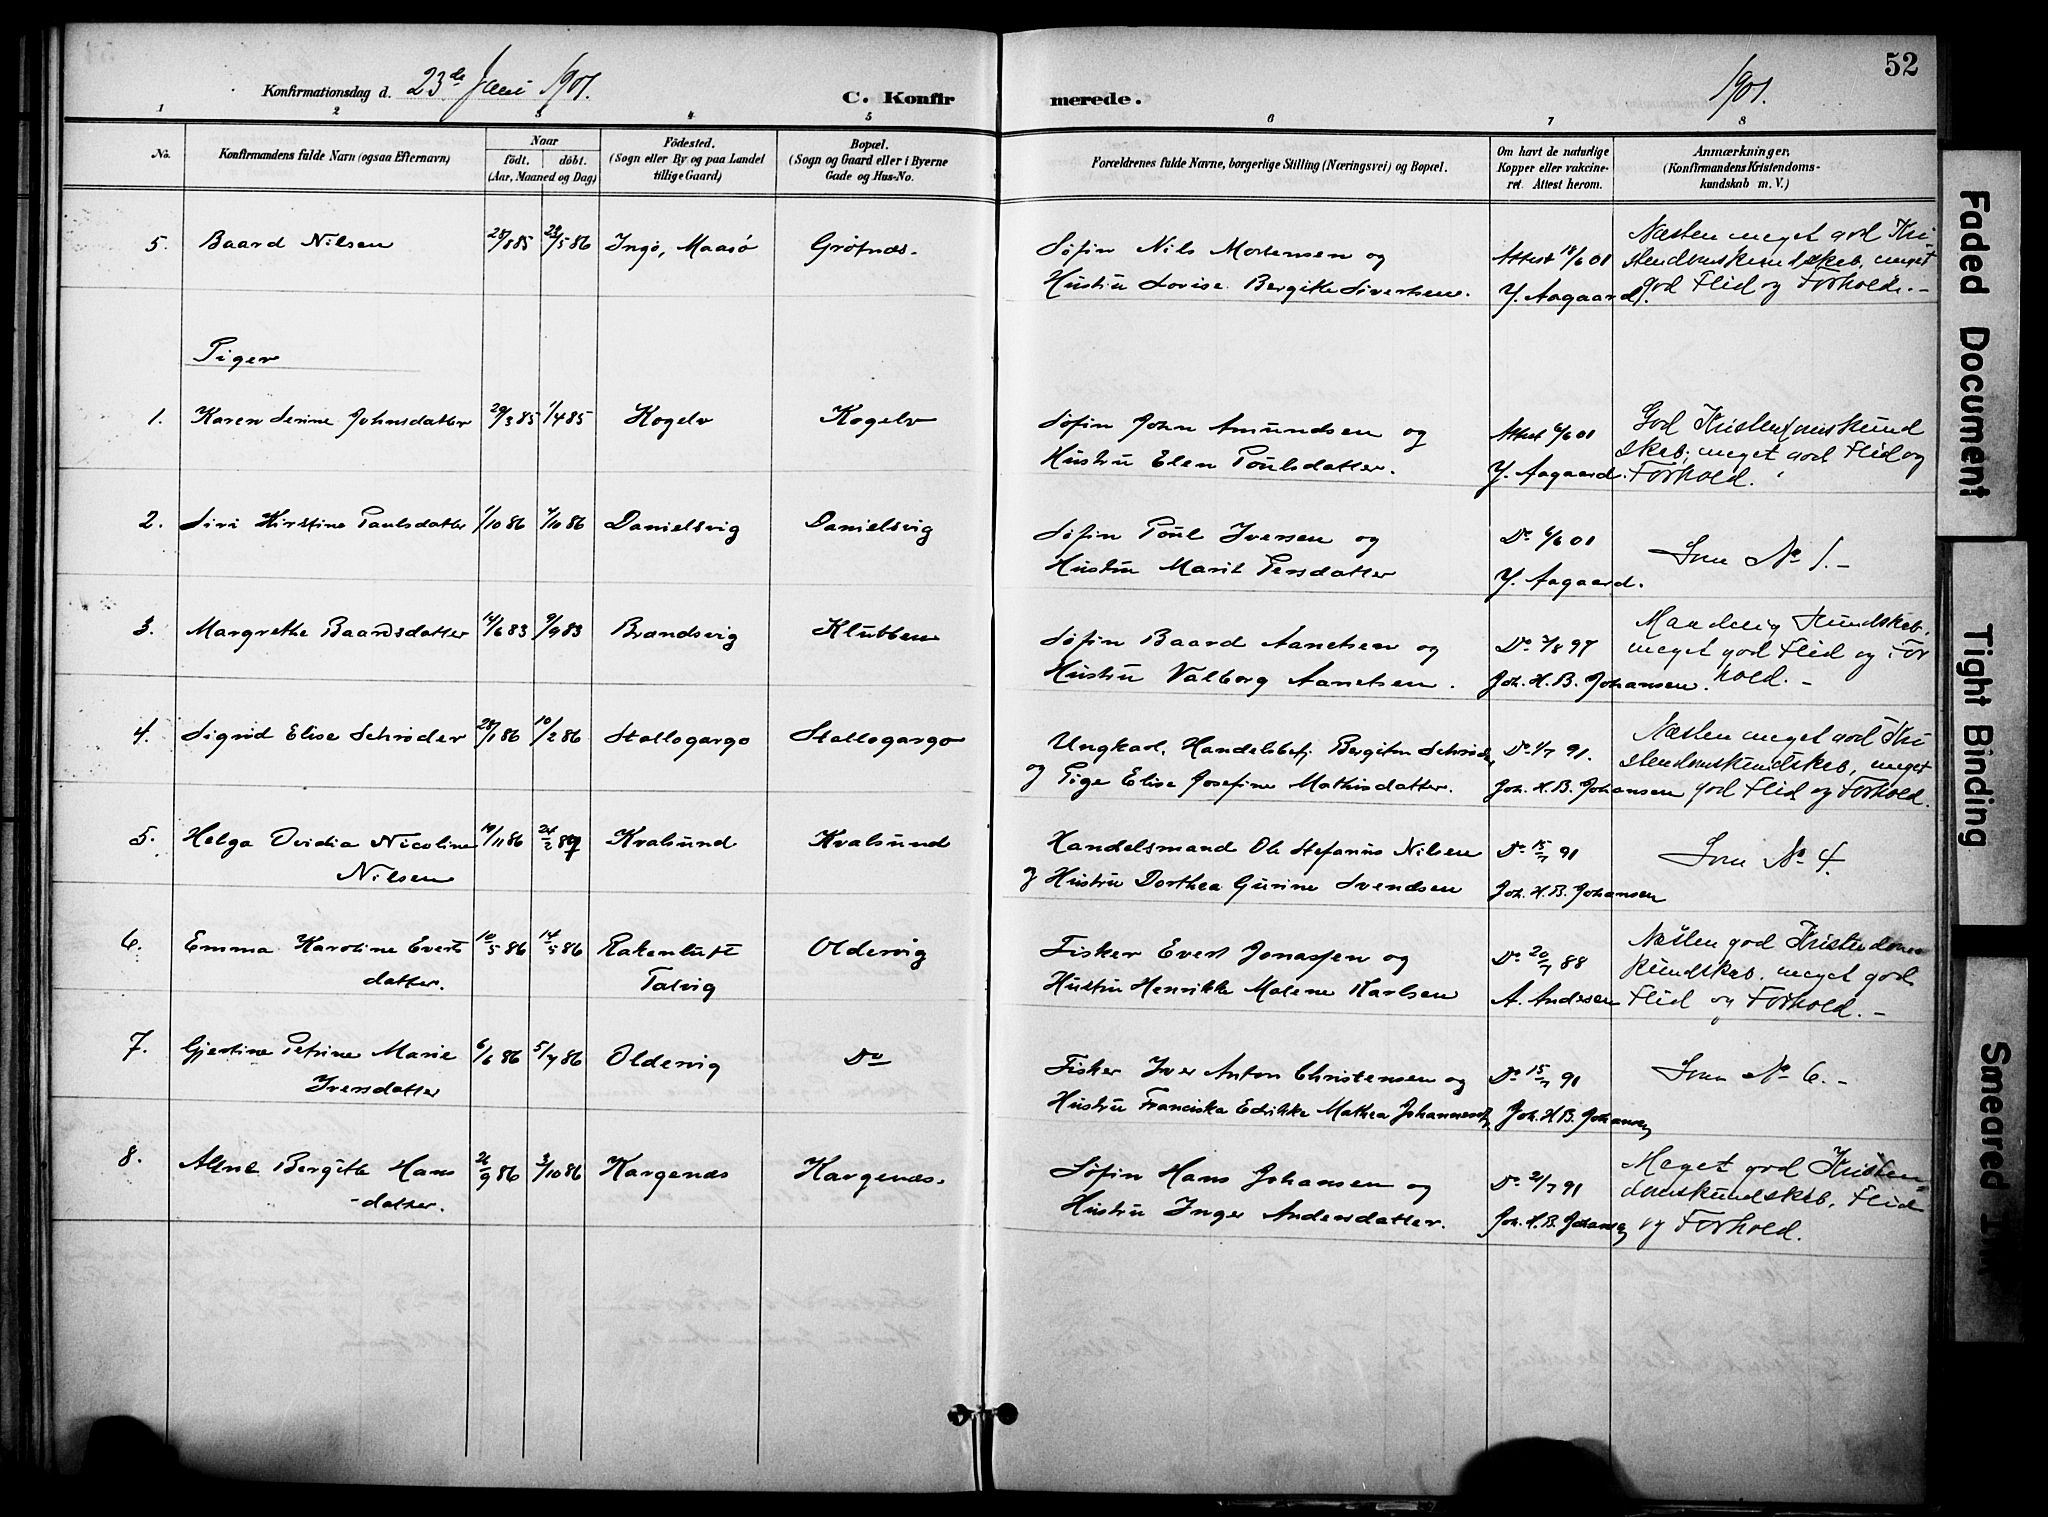 52
Konfirmationsdag d. 23de Juni 1901.
C. Konfir
merede.
1901.
1 2 3 4 5 6 7 8
No.
Konfirmandens fulde Navn (ogsaa Efternavn)
Naar
födt. döbt.
(Aar, Maaned og Dag)
Födested.
(Sogn eller By og paa Landet
tillige Gaard)
Bopæl.
(Sogn og Gaard eller i Byerne
Gade og Hus-No.
Forældrenes fulde Navne, borgerlige Stilling (Næringsvei) og Bopæl.
Om havt de naturlige
Kopper eller vakcine-
ret. Attest herom.
Anmærkninger,
(Konfirmandens Kristendoms-
kundskab m. V.)
5. Baard Nilsen 28/5 86 Ingö, Maasö Gröfnæs.
Söfin Nils Mortensen og
Hustru Lovise Bergitte Sivertsen.
Attest 18/6 01
Y. Aagaard.
Næsten meget god Kri-
stendomskundskab, meget
god Flid og Forhold. -
Piger
1. Karen Serine Johnsdatter 29/3 85 1/4 85 Kogelv Kogelv
Söfin John Amundsen og
Hustru Elen Poulsdatter.
Attest 6/6 01
Y. Aagaard.
God Kristendomskund
skab, meget god Flid og
Forhold.
2. Siri Kirstine Paulsdatter 1/10 86 7/10 86 Danielsvig Danielsvig
Söfin Poul Iversen og
Hustru Marit Persdatter
Do 6/6 01
Y. Aagaard.
Som No 1. -
3. Margrethe Baardsdatter 14/6 83 9/9 83 Brandsvig Klubben
Söfin Baard Aanetsen og
Hustru Valborg Aanetsen.
Do 3/8 97
Joh. H. B. Johansen.
Maadelig Kundskab.
meget god Flid og For
hold. -
4. Sigrid Elise Schröder 28/1 86 10/2 86 Stallogargo Stallogargo
Ungkarl, Handelsbetj. Bergiton Schröder
og Pige Elise Josefine Mathisdatter.
Do 1/7 91.
Joh. H. B. Johansen
Næsten meget god Kri
stendomskundskab, meget
god Flid og Forhold.
5. Helga Ovidia Nicoline 19/11 86 24/2 87 Kvalsund Kvalsund
Nilsen
Handelsmand Ole Stefanus Nilsen
og Hustru Dorthea Gurine Svendsen
Do 15/7 91
Joh. H. B. Johansen
Som No 4.
6. Emma Karoline Everts 10/5 86 14/5 86 Rakenluft Oldervig
datter. Talvig
Fisker Evert Jonassen og
Hustru Henrikke Malene Karlsen
Do 20/7 88
A. Andersen
Næsten god Kristendoms
kundskab, meget god
Flid og Forhold. -
7. Gjertine Petrine Marie 6/6 86 5/7 86 Oldervig Do
Iversdatter
Fisker Iver Anton Christensen og
Hustru Franciska Edrikke Mathea Johannesdtr.
Do 15/7 91
Joh. H. B. Johansen
Som No 6. -
8. Alene Bergitte Hans 21/9 86 3/10 86 Kargenæs Kargenæs.
-datter.
Söfin Hans Johansen og
Hustru Inger Andersdatter.
Do 21/7 91
Joh. H. B. Johansen
Meget god Kristen-
domskundskab, Flid
og Forhold.
Faded Document
Tight Binding
Smeared